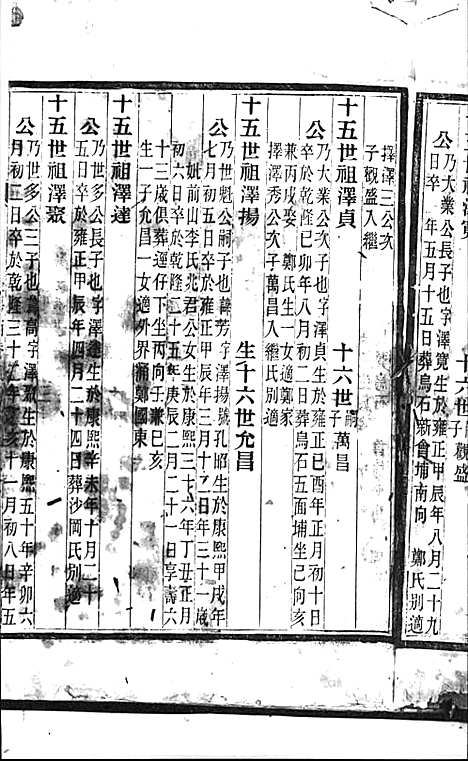 公乃大業公次子也字澤寬生於雍正甲辰年八月二十九
日卒 年五月十五日葬烏石新會埔南向 鄭氏別適
十六世 觀盛
擇澤三公次
子觀盛入繼
十五世祖澤貞 十六世嗣子萬昌
公乃大業公次子也字澤貞生於雍正己酉年正月初十日
卒於乾隆己卯年八月初二日葬烏石五面埔坐己向亥
兼丙戌娶 鄭氏生一女適鄭家
擇澤秀公次子萬昌入繼氏別適
十五世祖澤揚 生十六世允昌
公乃世魁公嗣子也諱芳字澤揚號孔昭生於康熙甲戌年
七月初五日卒於雍正甲辰年三月十二日年三十一歲
妣前山李氏北君公女生於康熙三十六年丁丑正月
初六日卒於乾隆二十五年庚辰二月二十一日享壽六
十三歲俱葬運仔下坐丙向壬兼巳亥
生一子允昌一女適外界橋鄭國東
十五世祖澤達
公乃世多公長子也字澤達生於康熙辛未年十月二十
五日卒於雍正甲辰年四月二十四日葬沙岡氏別適
十五世祖澤眾
公乃世多公三子也 字澤 生於康熙五十年辛卯六
月初三日卒於乾隆三十 亥十一月初八日年五